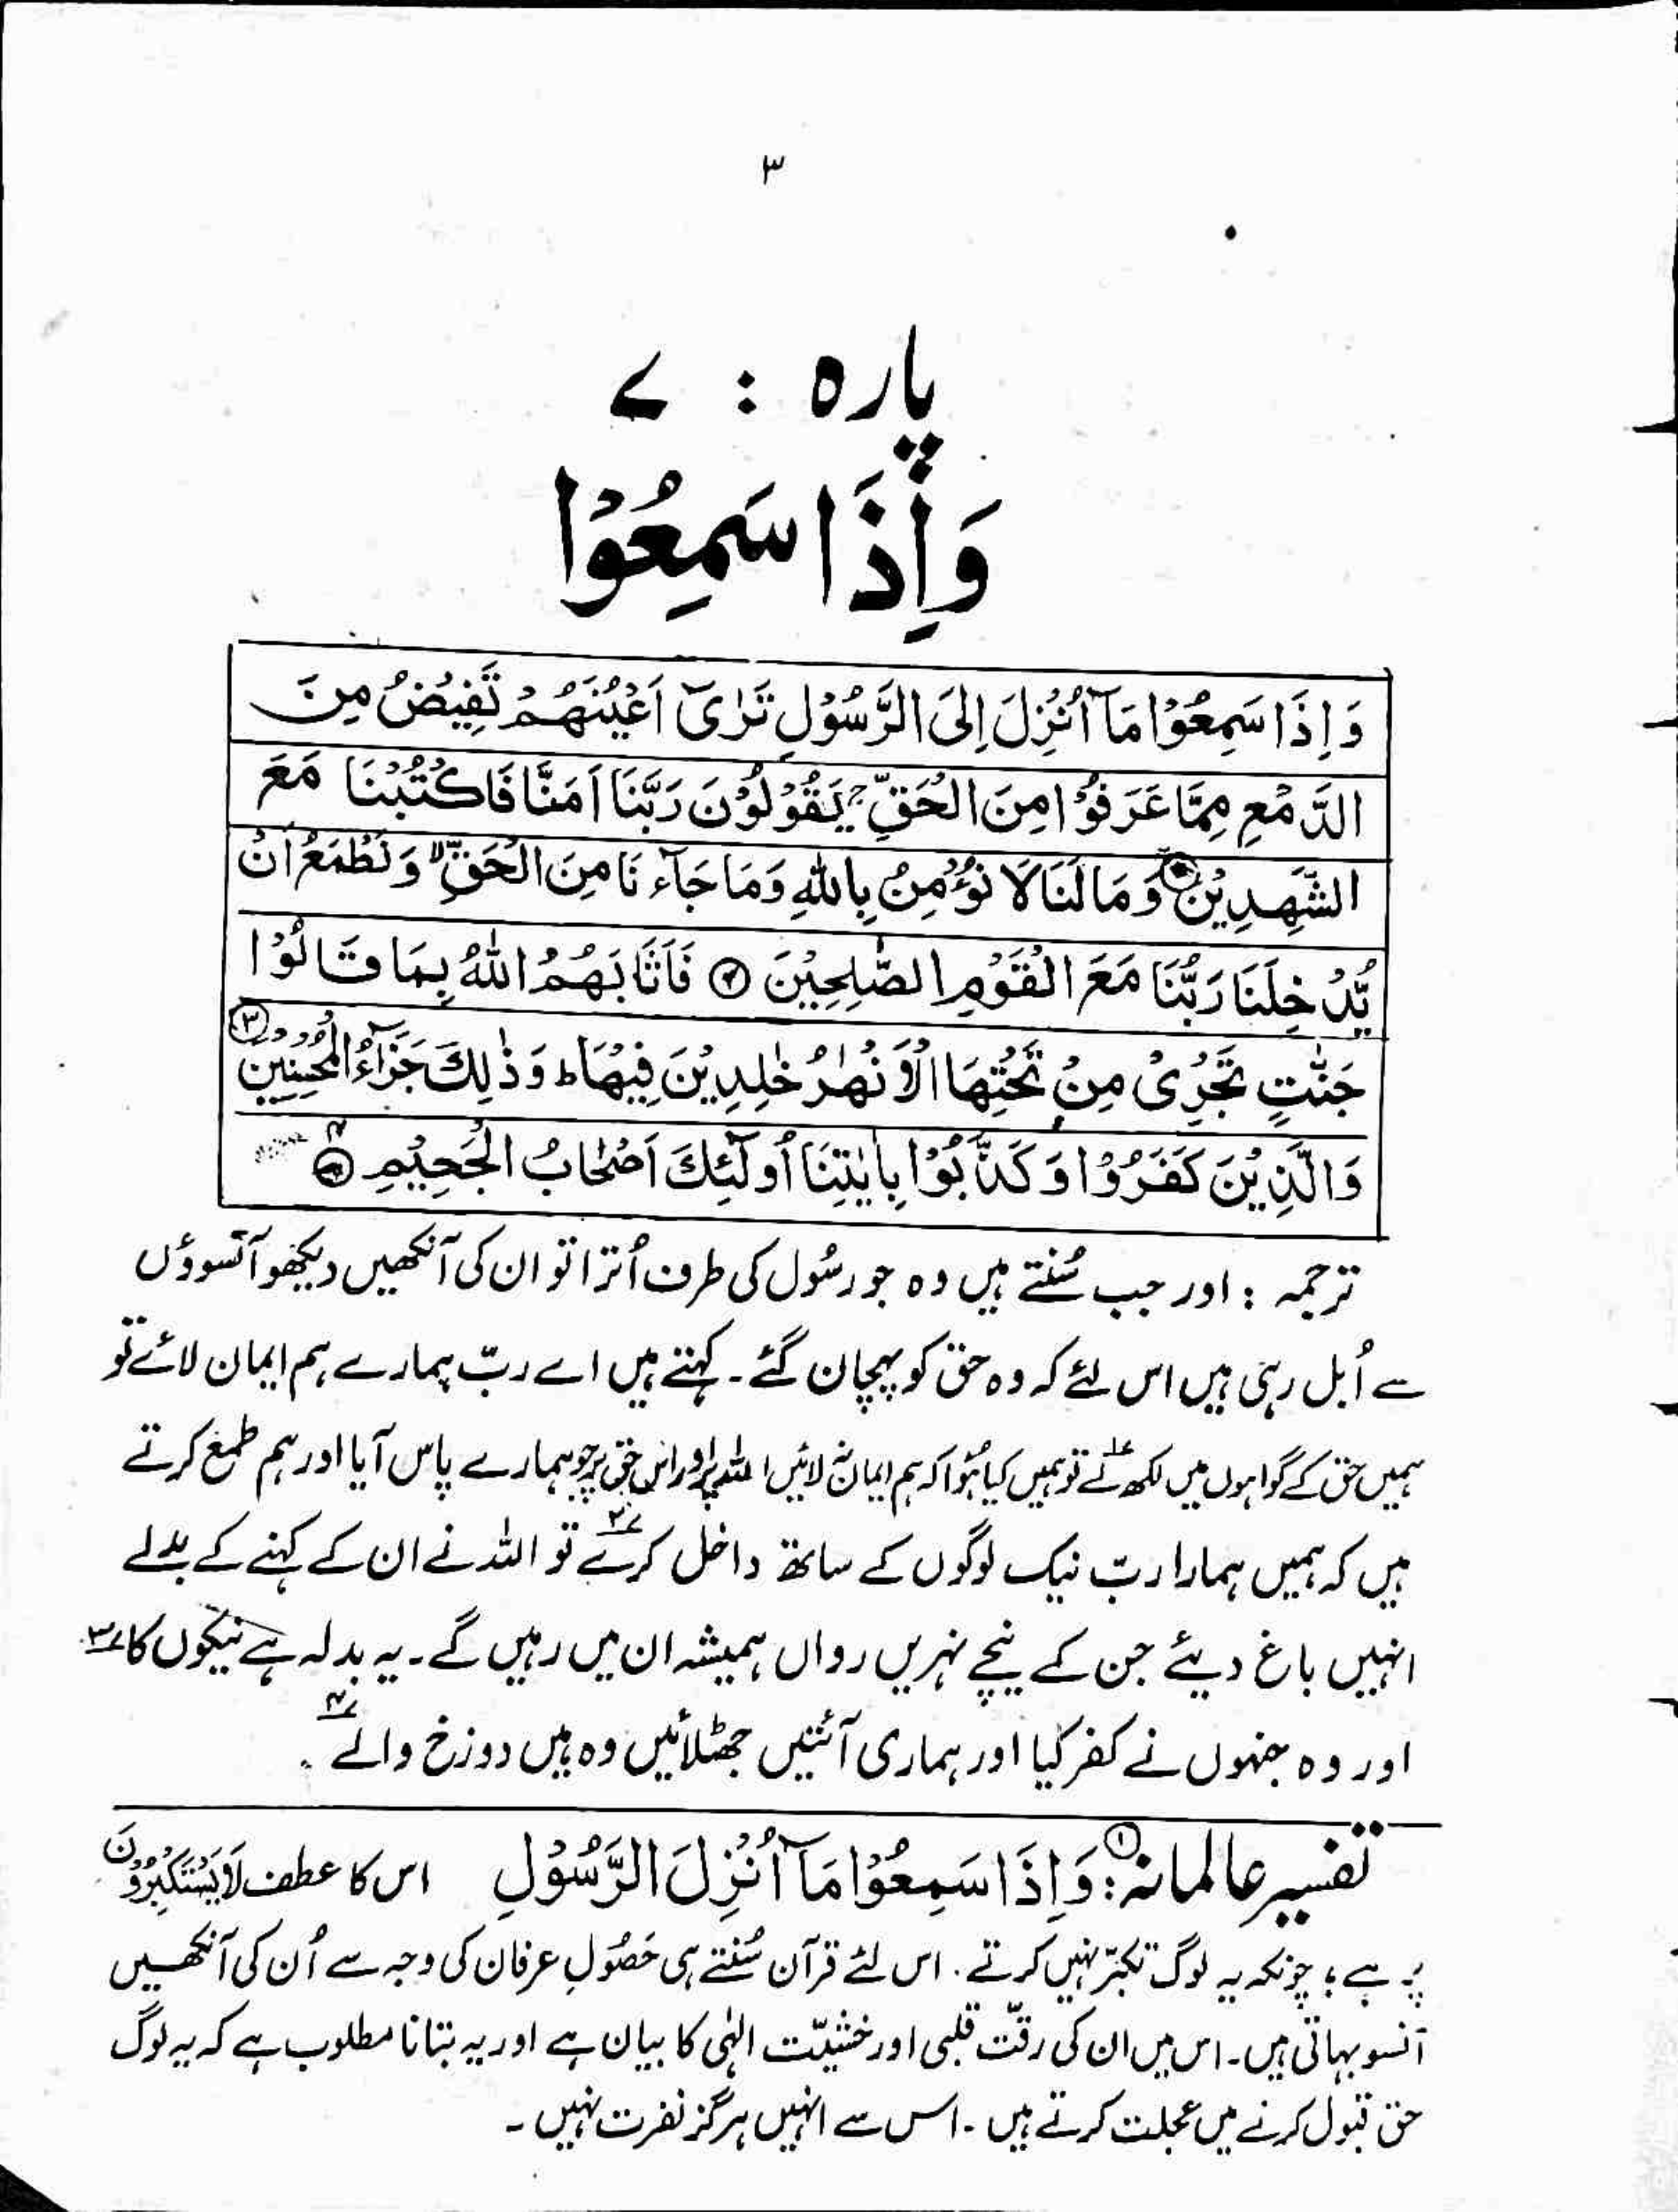 ۳
پارہ : ۷
وَاِذَا سَمِعُوْا
وَاِذَا سَمِعُوْا مَآ اُنْزِلَ اِلَى الرَّسُوْلِ تَرٰىٓ اَعْيُنَهُمْ تَفِيْضُ مِنَ
الدَّمْعِ مِمَّا عَرَفُوْا مِنَ الْحَقِّ ۚ يَقُوْلُوْنَ رَبَّنَا اٰمَنَّا فَاكْتُبْنَا مَعَ
الشّٰهِدِيْنَ ① وَمَا لَنَا لَا نُؤْمِنُ بِاللّٰهِ وَمَا جَآءَنَا مِنَ الْحَقِّ ۙ وَنَطْمَعُ اَنْ
يُّدْخِلَنَا رَبُّنَا مَعَ الْقَوْمِ الصّٰلِحِيْنَ ② فَاَثَابَهُمُ اللّٰهُ بِمَا قَالُوْا
جَنّٰتٍ تَجْرِيْ مِنْ تَحْتِهَا الْاَنْهٰرُ خٰلِدِيْنَ فِيْهَا ؕ وَذٰلِكَ جَزَآءُ الْمُحْسِنِيْنَ ③
وَالَّذِيْنَ كَفَرُوْا وَكَذَّبُوْا بِاٰيٰتِنَا اُولٰٓئِكَ اَصْحٰابُ الْجَحِيْمِ ④
ترجمہ : اور جب سُنتے ہیں وہ جو رسُول کی طرف اُترا تو ان کی آنکھیں دیکھو آنسوؤں
سے اُبل رہی ہیں اس لئے کہ وہ حق کو پہچان گئے ۔ کہتے ہیں اے ربّ ہمارے ہم ایمان لائے تو
ہمیں حق کے گواہوں میں لکھ لے ۱؎ تو ہمیں کیا ہُوا کہ ہم ایمان نہ لائیں اللہ پر اور اس حق پر جو ہمارے پاس آیا اور ہم طمع کرتے
ہیں کہ ہمیں ہمارا ربّ نیک لوگوں کے ساتھ داخل کرے ۲؎ تو اللہ نے ان کے کہنے کے بدلے
انہیں باغ دیئے جن کے نیچے نہریں رواں ہمیشہ ان میں رہیں گے ۔ یہ بدلہ ہے نیکوں کا ۳؎
اور وہ جنہوں نے کفر کیا اور ہماری آئتیں جھٹلائیں وہ ہیں دوزخ والے ۴؎ ۔
تفسیر عالمانہ : ① وَاِذَا سَمِعُوْا مَآ اُنْزِلَ الرَّسُوْلِ اس کا عطف لَا يَسْتَكْبِرُوْنَ
پر ہے ؛ چونکہ یہ لوگ تکبّر نہیں کرتے ۔ اس لئے قرآن سُنتے ہی حَصُولِ عرفان کی وجہ سے اُن کی آنکھیں
آنسو بہاتی ہیں ۔ اس میں ان کی رقّت قلبی اور خشیّت الٰہی کا بیان ہے اور یہ بتانا مطلوب ہے کہ یہ لوگ
حق قبول کرنے میں عجلت کرتے ہیں ۔ اس سے انہیں ہرگز نفرت نہیں ۔